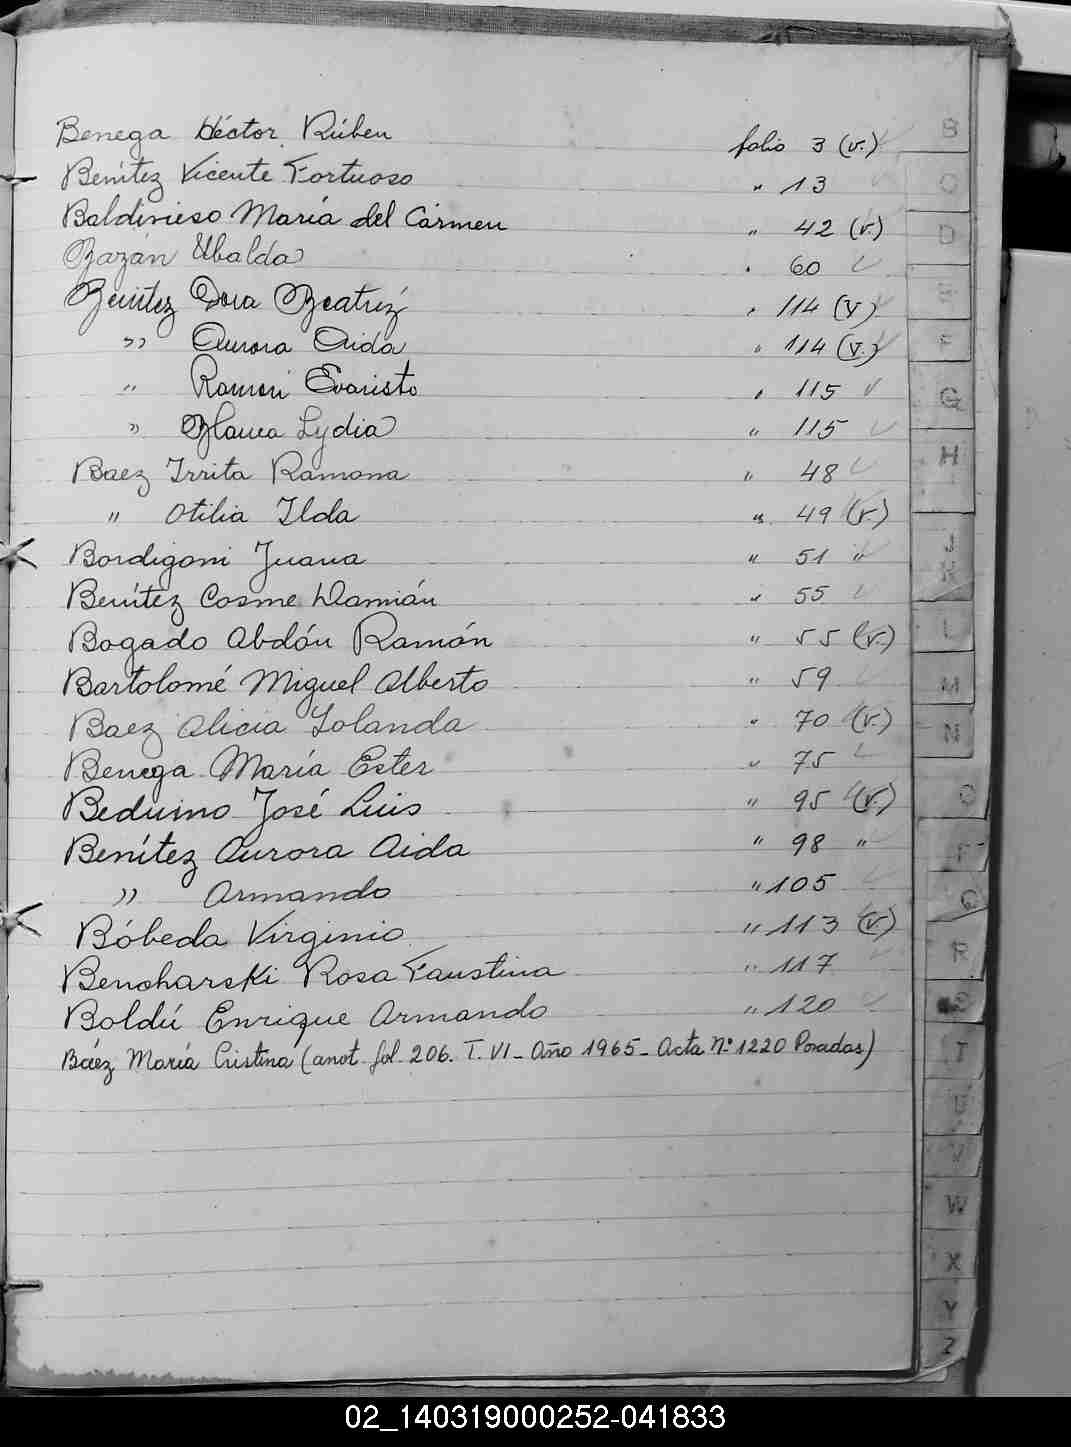 Benega Héctor Rúben folio 3 (v.)
Benítez Vicente Fortuoso " 13
Baldivieso María del Cármen " 42 (v.)
Bazán Ubalda " 60
Benítez Dora Beatríz " 114 (v)
" Aurora Aida " 114 (v.)
" Ramón Evaristo " 115
" Blanca Lydia " 115
Baez Irrita Ramona " 48
" Otilia Ilda " 49 (v.)
Bordigoni Juana " 51 "
Benítez Cosme Damián " 55
Bogado Abdón Ramón " 55 (v.)
Bartolomé Miguel Alberto " 59
Baez Alicia Iolanda " 70 (v.)
Benega María Ester " 75
Beduino José Luis " 95 (v.)
Benítez Aurora Aida " 98 "
" Armando " 105
Bóbeda Virginio " 113 (v)
Benoharski Rosa Faustina " 117
Boldú Enrique Armando " 120
Báez María Cristina (anot. fol. 206. T. VI - Año 1965 - Acta Nº 1220 Posadas)
B
C
D
E
F
G
H
J
K
L
M
N
O
P
Q
R
S
T
U
V
W
X
Y
Z
02_140319000252-041833